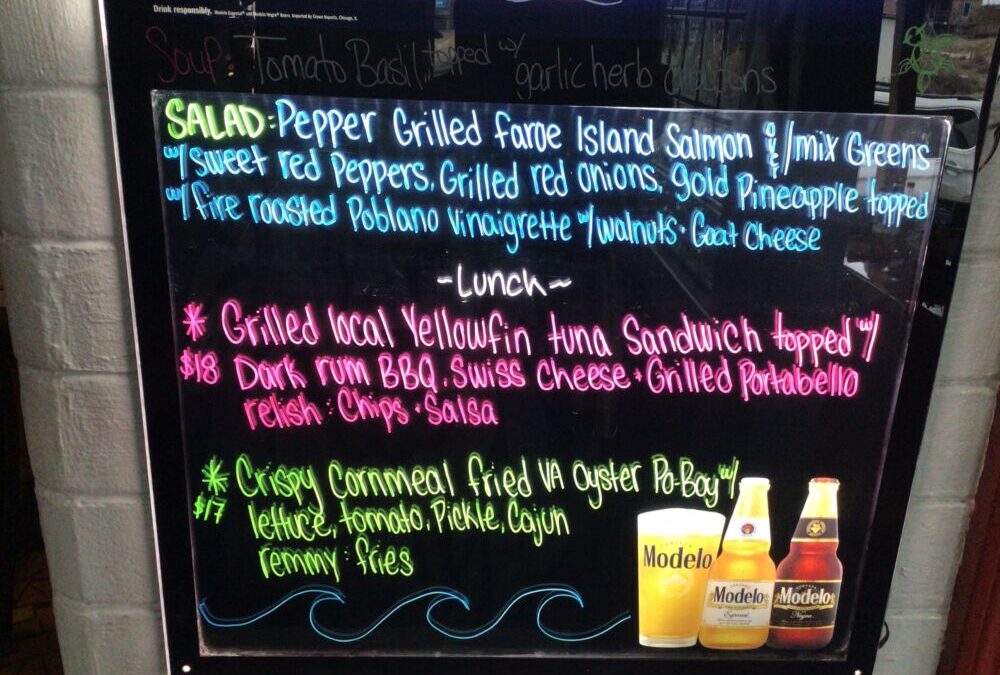 Drink responsibly. Modelo Especial® and Modelo Negra® Beers. Imported by Crown Imports, Chicago, IL
Soup: Tomato Basil, topped w/ garlic herb croutons
SALAD: Pepper Grilled faroe Island Salmon over/mix Greens
w/ sweet red Peppers. Grilled red onions. gold Pineapple topped
w/ fire roasted Poblano vinaigrette w/walnuts · Goat Cheese
~Lunch~
* Grilled local Yellowfin tuna Sandwich topped w/
$18 Dark rum BBQ. Swiss Cheese + Grilled Portabello
relish : Chips · Salsa
* Crispy Cornmeal fried VA Oyster Po-Boy w/
$17 lettuce, tomato, Pickle, Cajun
remmy : fries
Modelo
Modelo
Especial
Modelo
Negra